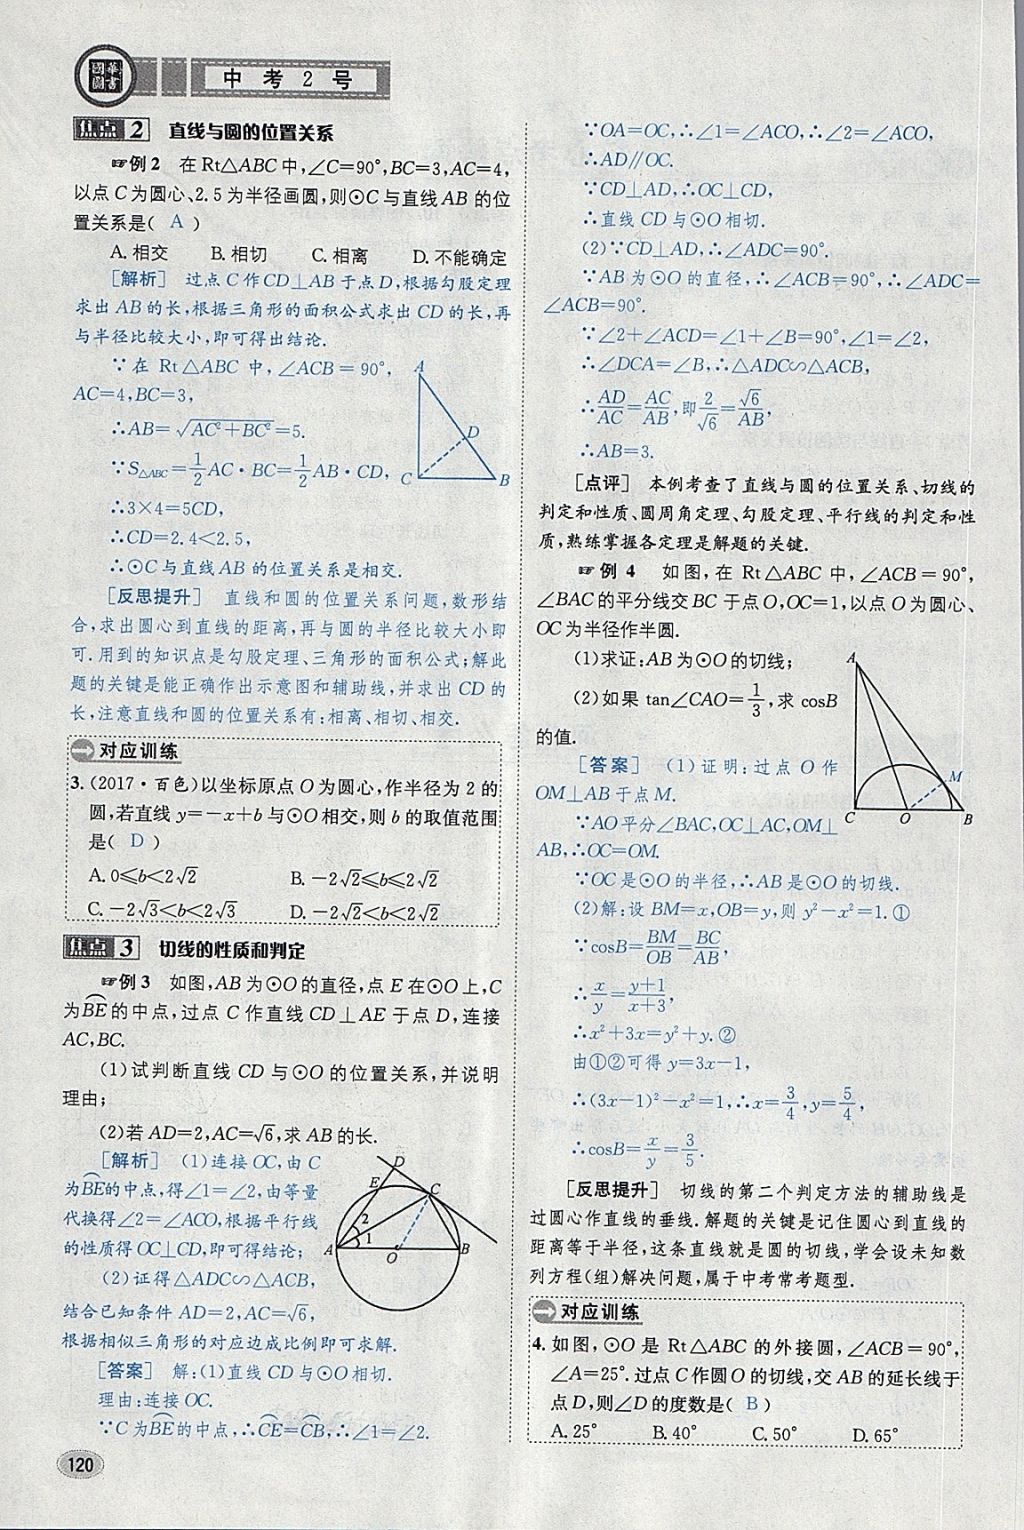 國華圖書
中考2号
焦点2 直线与圆的位置关系
☞例2 在Rt△ABC中,∠C=90°,BC=3,AC=4,
以点C为圆心、2.5为半径画圆,则⊙C与直线AB的位
置关系是( A )
A.相交 B.相切 C.相离 D.不能确定
[解析] 过点C作CD⊥AB于点D,根据勾股定理
求出AB的长,根据三角形的面积公式求出CD的长,再
与半径比较大小,即可得出结论.
∵在Rt△ABC中,∠ACB=90°,
AC=4,BC=3,
∴AB=√(AC²+BC²)=5.
∵S△ABC=1/2AC·BC=1/2AB·CD,
∴3×4=5CD,
∴CD=2.4<2.5,
∴⊙C与直线AB的位置关系是相交.
A
D
C
B
[反思提升] 直线和圆的位置关系问题,数形结
合,求出圆心到直线的距离,再与圆的半径比较大小即
可.用到的知识点是勾股定理、三角形的面积公式;解此
题的关键是能正确作出示意图和辅助线,并求出CD的
长,注意直线和圆的位置关系有:相离、相切、相交.
对应训练
3.(2017·百色)以坐标原点O为圆心,作半径为2的
圆,若直线y=-x+b与⊙O相交,则b的取值范围
是( D )
A.0≤b<2√2 B.-2√2≤b≤2√2
C.-2√3<b<2√3 D.-2√2<b<2√2
焦点3 切线的性质和判定
☞例3 如图,AB为⊙O的直径,点E在⊙O上,C
为BE⌒的中点,过点C作直线CD⊥AE于点D,连接
AC,BC.
(1)试判断直线CD与⊙O的位置关系,并说明
理由;
(2)若AD=2,AC=√6,求AB的长.
[解析] (1)连接OC,由C
为BE⌒的中点,得∠1=∠2,由等量
代换得∠2=∠ACO,根据平行线
的性质得OC⊥CD,即可得结论;
(2)证得△ADC∽△ACB,
结合已知条件AD=2,AC=√6,
根据相似三角形的对应边成比例即可求解.
D
E
C
2
1
A
O
B
[答案] 解:(1)直线CD与⊙O相切.
理由:连接OC.
∵C为BE⌒的中点,∴CE⌒=CB⌒,∴∠1=∠2.
120
∵OA=OC,∴∠1=∠ACO,∴∠2=∠ACO,
∴AD∥OC.
∵CD⊥AD,∴OC⊥CD,
∴直线CD与⊙O相切.
(2)∵CD⊥AD,∴∠ADC=90°.
∵AB为⊙O的直径,∴∠ACB=90°,∴∠ADC=
∠ACB=90°.
∵∠2+∠ACD=∠1+∠B=90°,∠1=∠2,
∴∠DCA=∠B,∴△ADC∽△ACB,
∴AD/AC=AC/AB,即2/√6=√6/AB,
∴AB=3.
[点评] 本例考查了直线与圆的位置关系、切线的
判定和性质、圆周角定理、勾股定理、平行线的判定和性
质,熟练掌握各定理是解题的关键.
☞例4 如图,在Rt△ABC中,∠ACB=90°,
∠BAC的平分线交BC于点O,OC=1,以点O为圆心、
OC为半径作半圆.
(1)求证:AB为⊙O的切线;
(2)如果tan∠CAO=1/3,求cosB
的值.
A
M
C
O
B
[答案] (1)证明:过点O作
OM⊥AB于点M.
∵AO平分∠BAC,OC⊥AC,OM⊥
AB,∴OC=OM.
∵OC是⊙O的半径,∴AB是⊙O的切线.
(2)解:设BM=x,OB=y,则y²-x²=1.①
∵cosB=BM/OB=BC/AB,
∴x/y=(y+1)/(x+3),
∴x²+3x=y²+y.②
由①②可得y=3x-1,
∴(3x-1)²-x²=1,∴x=3/4,y=5/4,
∴cosB=x/y=3/5.
[反思提升] 切线的第二个判定方法的辅助线是
过圆心作直线的垂线.解题的关键是记住圆心到直线的
距离等于半径,这条直线就是圆的切线,学会设未知数
列方程(组)解决问题,属于中考常考题型.
对应训练
4.如图,⊙O是Rt△ABC的外接圆,∠ACB=90°,
∠A=25°.过点C作圆O的切线,交AB的延长线于
点D,则∠D的度数是( B )
A.25° B.40° C.50° D.65°